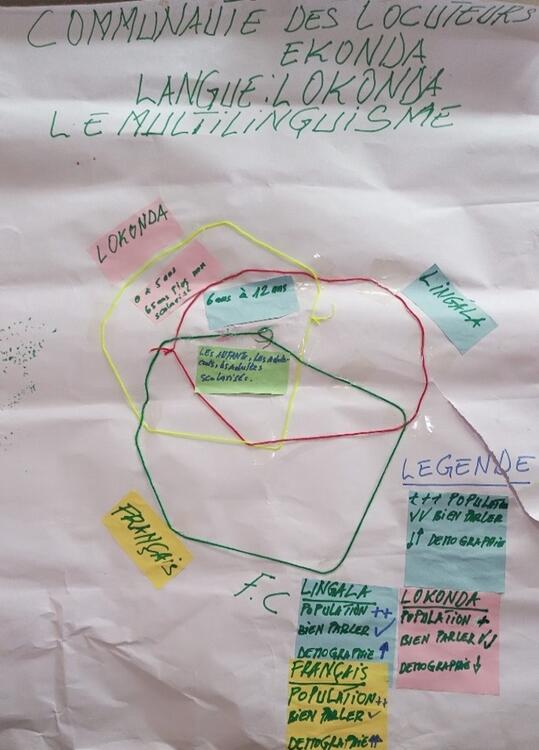 COMMUNAUTE DES LOCUTEURS
EKONDA
LANGUE: LOKONDA
LE MULTILINGUISME
LOKONDA
0 à 5 ans
65 ans Plus non
scolarisé
6 ans à 12 ans
LINGALA
LES ENFANTS, LES ADOLE-
LES ADULTES
SCOLARISÉS.
FRANÇAIS
LEGENDE
+++ POPULATION
√√ BIEN PARLER
↓↑ DEMOGRAPHIE
F.C
LINGALA
POPULATION ++
BIEN PARLER √
DEMOGRAPHIE ↑
LOKONDA
POPULATION +
BIEN PARLER √√
DEMOGRAPHIE ↓
FRANÇAIS
POPULATION ++
BIEN PARLER √
DEMOGRAPHIE ⇈